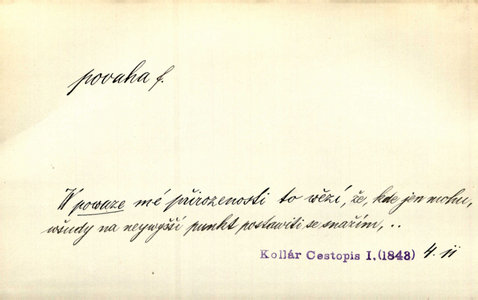 povaha f.
W powaze mé přirozenosti to wězí, že, kde jen mohu,
wšudy na neywyšší punkt postawiti se snažím, ..
Kollár Cestopis I. (1843) 4. ii